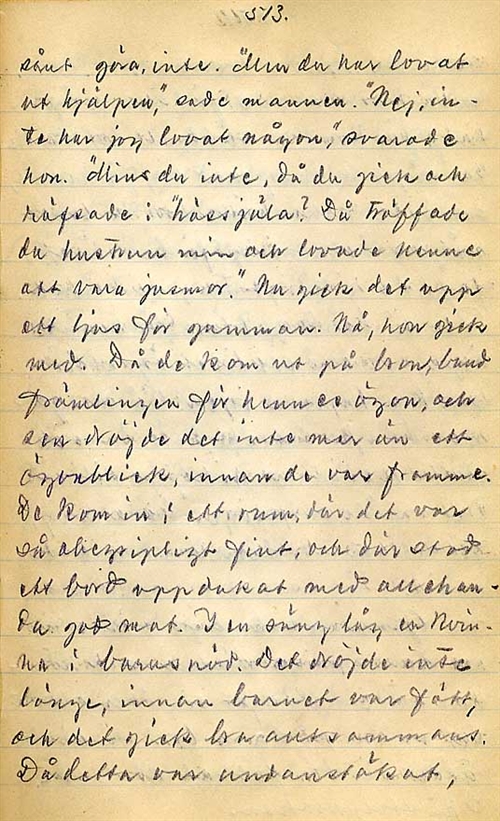 513.
sånt göra, inte. "Men du har lovat
ut hjälpen," sade mannen. "Nej, in-
te har jag lovat någon," svarade
hon. "Mins du inte, då du gick och
räfsade i "hässjåla? Då träffade
du hustrun min och lovade henne
att vara jusmor." Nu gick det upp
ett ljus för gumman. Nå, hon gick
med. Då de kom ut på bron, band
främlingen för hennes ögon, och
sen dröjde det inte mer än ett
ögonblick, innan de var framme.
De kom in i ett rum, där det var
så obegripligt fint, och där stod
ett bord uppdukat med allehan-
da god mat. I en säng låg en kvin-
na i barnsnöd. Det dröjde inte
länge, innan barnet var fött,
och det gick bra altsammans.
Då detta var undanstökat,